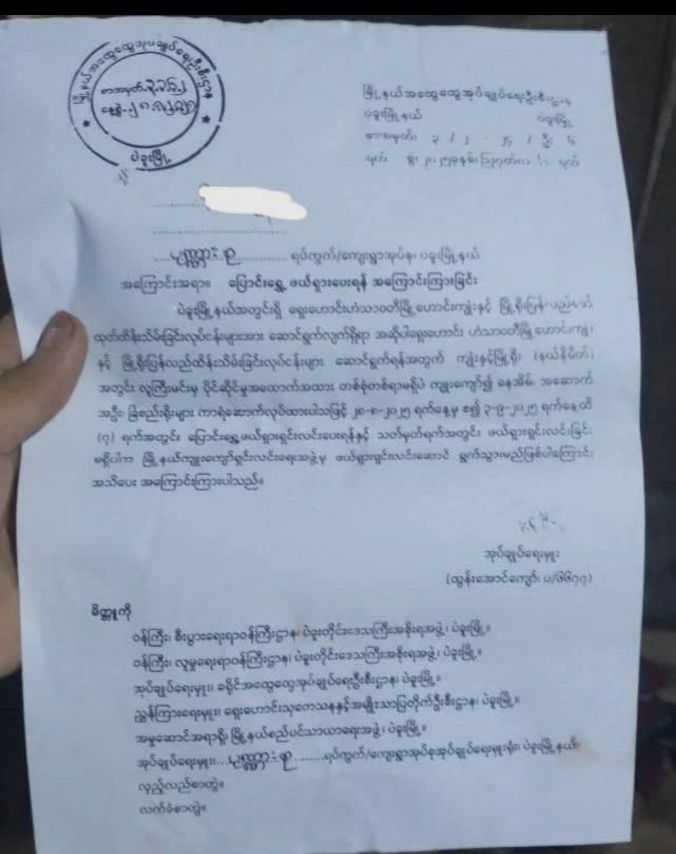 မြို့နယ်အထွေထွေအုပ်ချုပ်ရေးဦးစီးဌာန
စာအမှတ်
နေ့စွဲ
ပဲခူးမြို့
မြို့နယ်အထွေထွေအုပ်ချုပ်ရေးဦးစီးဌာန
ပဲခူးမြို့နယ် ပဲခူးမြို့
စာအမှတ်၊ ၃ / ၂ - / ဦး ၆
ရက်စွဲ၊ ၂၀၂၅ခုနှစ်၊ ဩဂုတ်လ ရက်
ရပ်ကွက်/ကျေးရွာအုပ်စု၊ ပဲခူးမြို့နယ်
အကြောင်းအရာ။ ပြောင်းရွှေ့ ဖယ်ရှားပေးရန် အကြောင်းကြားခြင်း
ပဲခူးမြို့နယ်အတွင်းရှိ ရှေးဟောင်းဟံသာဝတီမြို့ဟောင်းကျုံးနှင့် မြို့ရိုးပြန်လည်ဖော်
ထုတ်ထိန်းသိမ်းခြင်းလုပ်ငန်းများအား ဆောင်ရွက်လျက်ရှိရာ အဆိုပါရှေးဟောင်း ဟံသာဝတီမြို့ဟောင်းကျုံး
နှင့် မြို့ရိုးပြန်လည်ထိန်းသိမ်းခြင်းလုပ်ငန်းများ ဆောင်ရွက်ရန်အတွက် ကျုံးနှင့်မြို့ရိုး (နယ်နိမိတ်)
အတွင်း လူကြီးမင်းမှ ပိုင်ဆိုင်မှုအထောက်အထား တစ်စုံတစ်ရာမရှိပဲ ကျူးကျော်၍ နေအိမ်၊ အဆောက်
အဦး၊ ခြံစည်းရိုးများ ကာရံဆောက်လုပ်ထားပါသဖြင့် ၂၈-၈-၂၀၂၅ ရက်နေ့မှ စ၍ ၃-၉-၂၀၂၅ ရက်နေ့ထိ
(၇) ရက်အတွင်း ပြောင်းရွှေ့ဖယ်ရှားရှင်းလင်းပေးရန်နှင့် သတ်မှတ်ရက်အတွင်း ဖယ်ရှားရှင်းလင်းခြင်း
မရှိပါက မြို့နယ်ကျူးကျော်ရှင်းလင်းရေးအဖွဲ့မှ ဖယ်ရှားရှင်းလင်းဆောင် ရွက်သွားမည်ဖြစ်ပါကြောင်း
အသိပေး အကြောင်းကြားပါသည်။
အုပ်ချုပ်ရေးမှူး
(ထွန်းအောင်ကျော်၊ ပ/၆၆၇၇)
မိတ္တူကို
ဝန်ကြီး၊ စီးပွားရေးရာဝန်ကြီးဌာန၊ ပဲခူးတိုင်းဒေသကြီးအစိုးရအဖွဲ့၊ ပဲခူးမြို့။
ဝန်ကြီး၊ လူမှုရေးရာဝန်ကြီးဌာန၊ ပဲခူးတိုင်းဒေသကြီးအစိုးရအဖွဲ့၊ ပဲခူးမြို့။
အုပ်ချုပ်ရေးမှူး၊ ခရိုင်အထွေထွေအုပ်ချုပ်ရေးဦးစီးဌာန၊ ပဲခူးမြို့။
ညွှန်ကြားရေးမှူး၊ ရှေးဟောင်းသုတေသနနှင့်အမျိုးသားပြတိုက်ဦးစီးဌာန၊ ပဲခူးမြို့။
အမှုဆောင်အရာရှိ၊ မြို့နယ်စည်ပင်သာယာရေးအဖွဲ့၊ ပဲခူးမြို့။
အုပ်ချုပ်ရေးမှူး၊ ရပ်ကွက်/ကျေးရွာအုပ်စုအုပ်ချုပ်ရေးမှူးရုံး၊ ပဲခူးမြို့နယ်
လှည့်လည်စာတွဲ။
လက်ခံစာတွဲ။